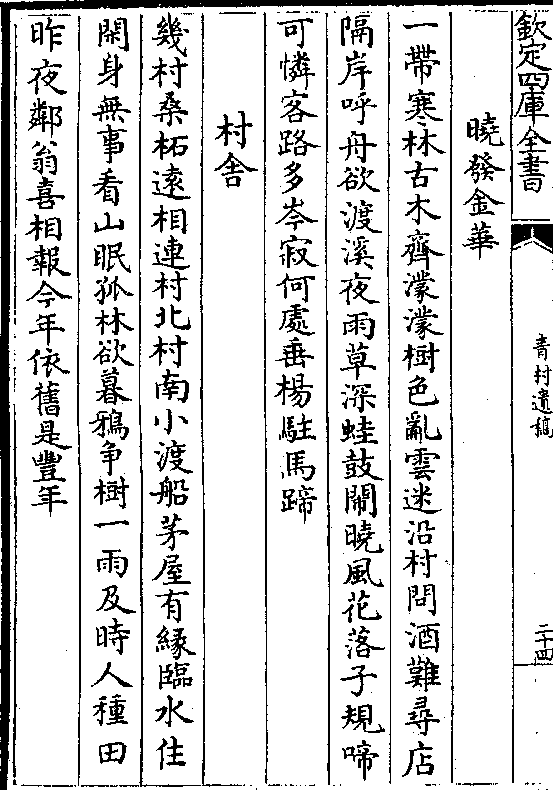 欽定四庫全書
青村遺稿
二十四
曉發金華
一帶寒林古木齊濛濛樹色亂雲迷沿村問酒難尋店
隔岸呼舟欲渡溪夜雨草深蛙鼓鬧曉風花落子規啼
可憐客路多岑寂何處垂楊駐馬蹄
村舍
幾村桑柘遠相連村北村南小渡船茅屋有緣臨水住
閑身無事看山眠孤林欲暮鴉争樹一雨及時人種田
昨夜鄰翁喜相報今年依舊是豐年